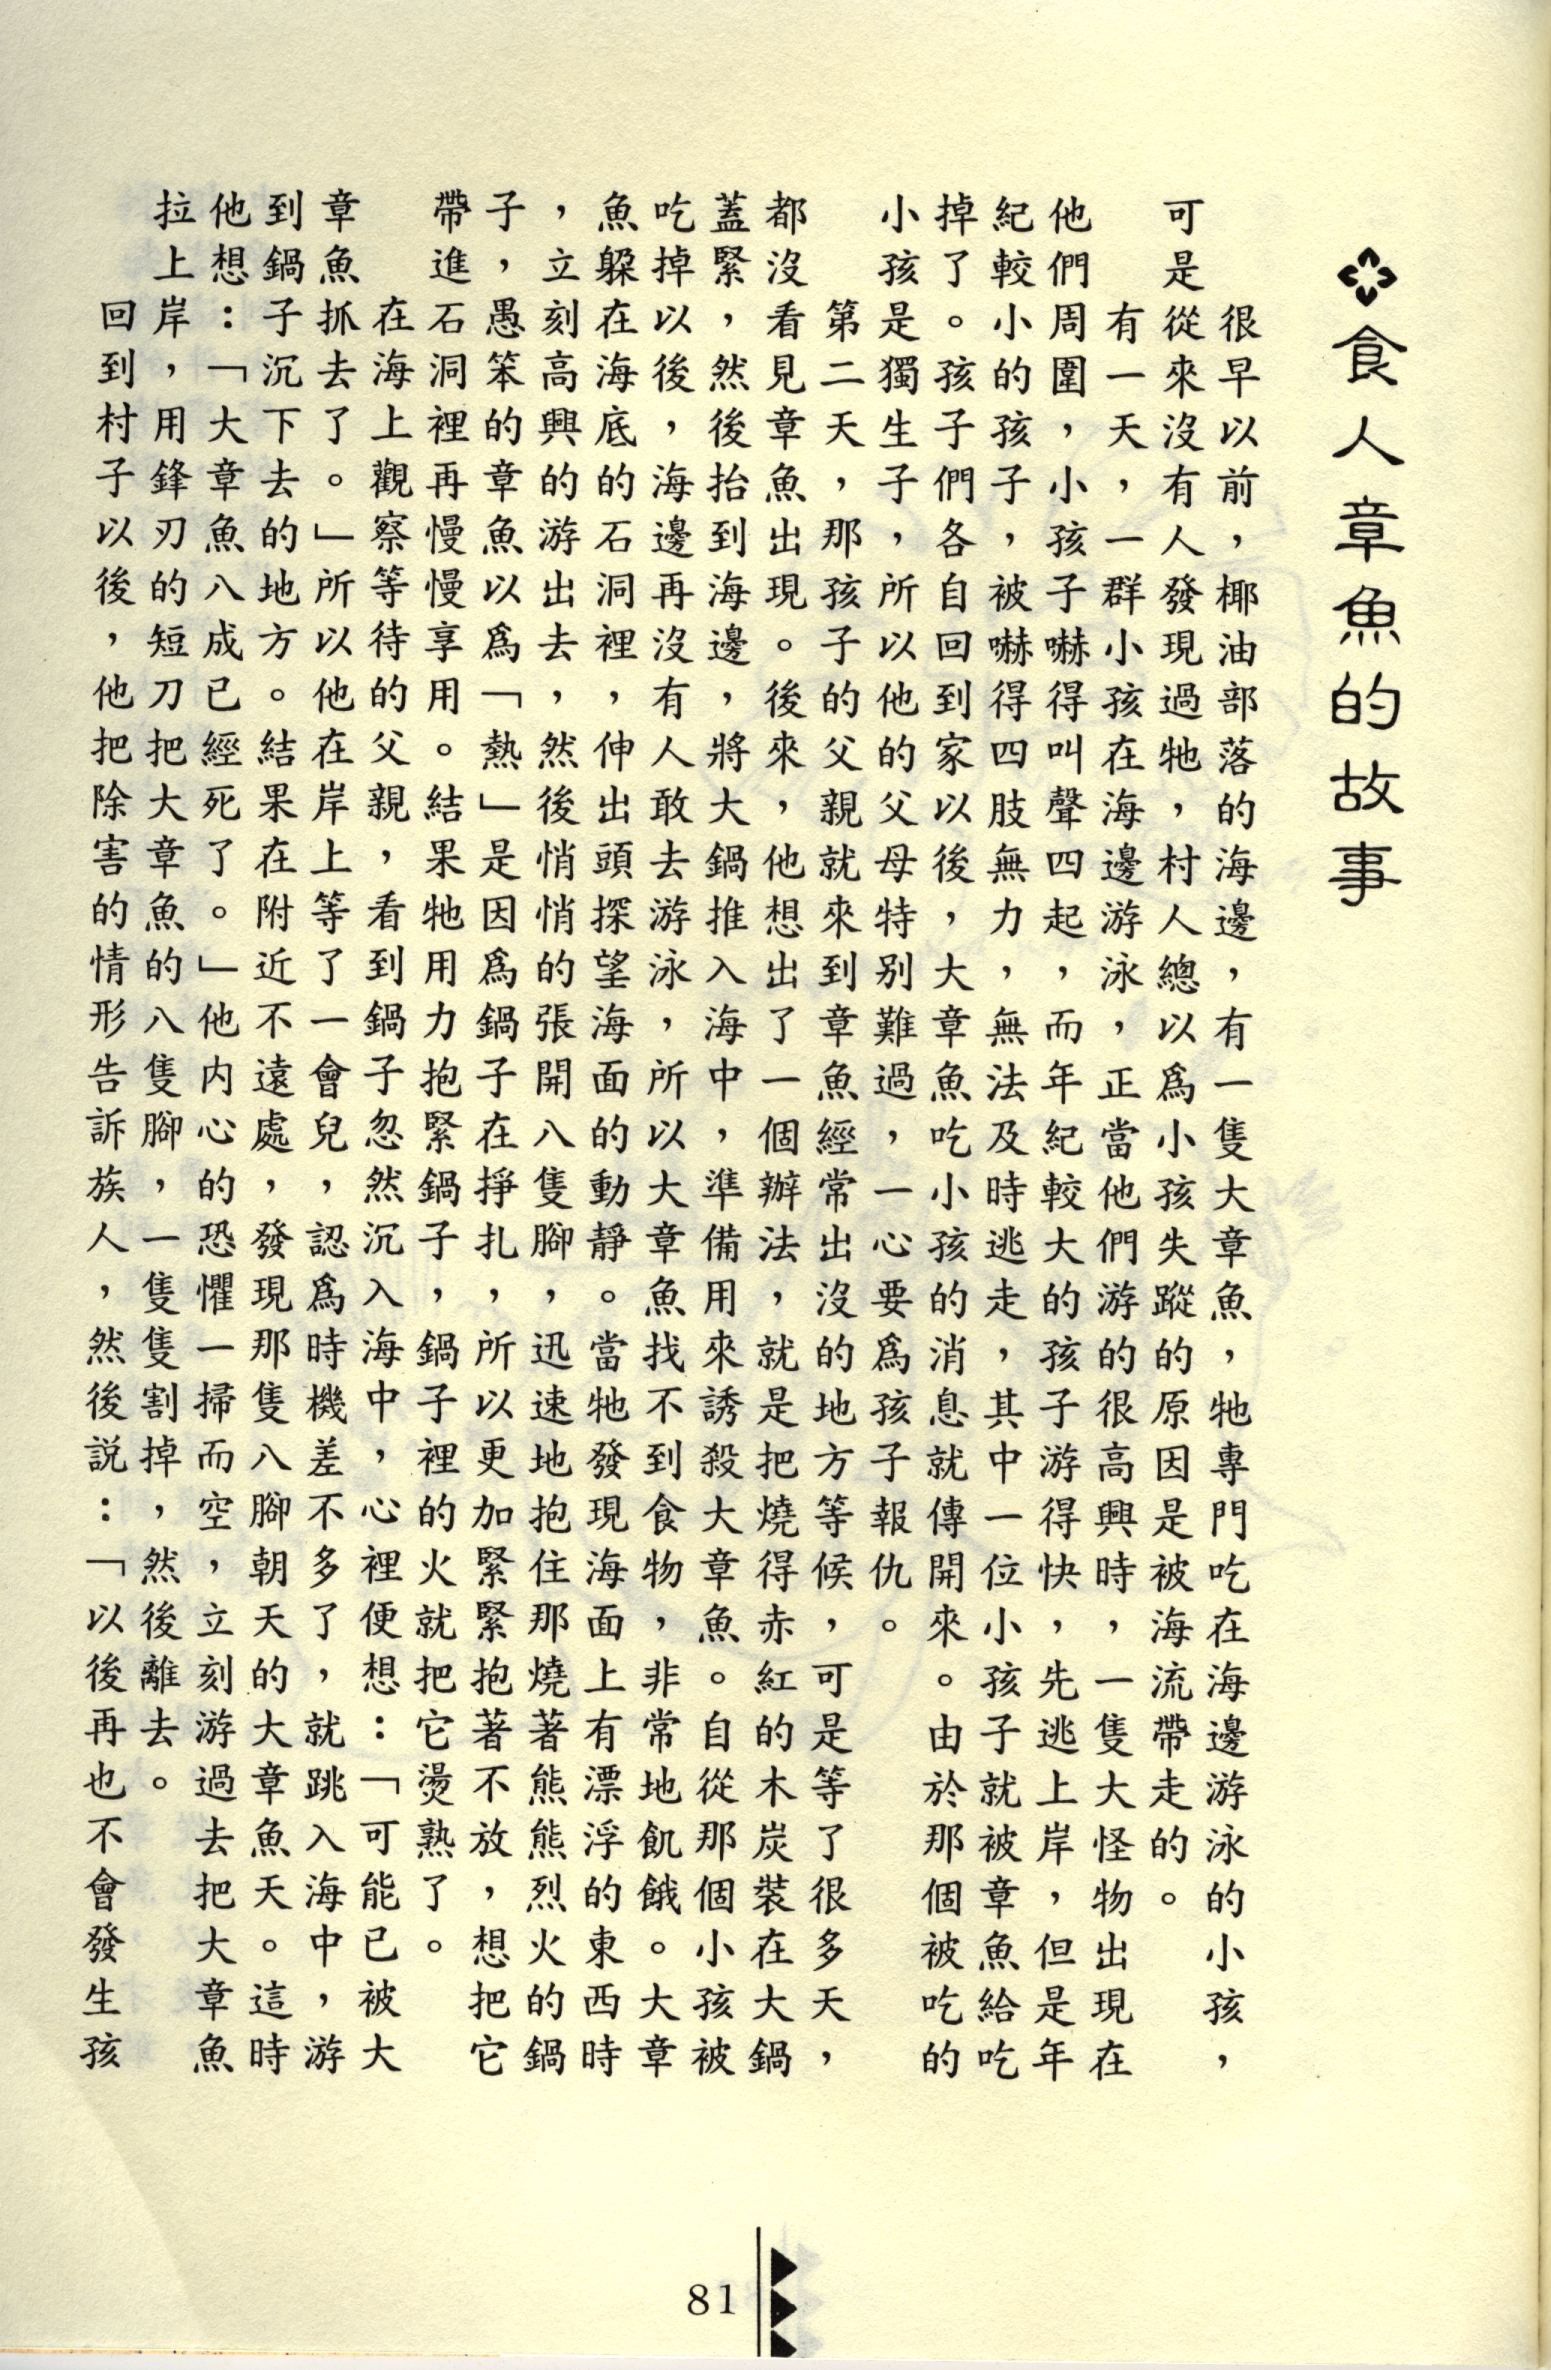 食人章魚的故事
很早以前，椰油部落的海邊，有一隻大章魚，牠專門吃在海邊游泳的小孩，
可是從來沒有人發現過牠，村人總以爲小孩失蹤的原因是被海流帶走的。
有一天，一群小孩在海邊游泳，正當他們游的很高興時，一隻大怪物出現在
他們周圍，小孩子嚇得叫聲四起，而年紀較大的孩子游得快，先逃上岸，但是年
紀較小的孩子，被嚇得四肢無力，無法及時逃走，其中一位小孩子就被章魚給吃
掉了。孩子們各自回到家以後，大章魚吃小孩的消息就傳開來。由於那個被吃的
小孩是獨生子，所以他的父母特別難過，一心要爲孩子報仇。
第二天，那孩子的父親就來到章魚經常出沒的地方等候，可是等了很多天，
都沒看見章魚出現。後來，他想出了一個辦法，就是把燒得赤紅的木炭裝在大鍋
蓋緊，然後抬到海邊，將大鍋推入海中，準備用來誘殺大章魚。自從那個小孩被
吃掉以後，海邊再沒有人敢去游泳，所以大章魚找不到食物，非常地飢餓。大章
魚躲在海底的石洞裡，伸出頭探望海面的動靜。當牠發現海面上有漂浮的東西時
，立刻高興的游出去，然後悄悄的張開八隻腳，迅速地抱住那燒著熊熊烈火的鍋
子，愚笨的章魚以爲「熱」是因爲鍋子在掙扎，所以更加緊緊抱著不放，想把它
帶進石洞裡再慢慢享用。結果牠用力抱緊鍋子，鍋子裡的火就把它燙熟了。
在海上觀察等待的父親，看到鍋子忽然沉入海中，心裡便想：「可能已被大
章魚抓去了。」所以他在岸上等了一會兒，認爲時機差不多了，就跳入海中，游
到鍋子沉下去的地方。結果在附近不遠處，發現那隻八腳朝天的大章魚天。這時
他想：「大章魚八成已經死了。」他內心的恐懼一掃而空，立刻游過去把大章魚
拉上岸，用鋒刃的短刀把大章魚的八隻腳，一隻隻割掉，然後離去。
回到村子以後，他把除害的情形告訴族人，然後說：「以後再也不會發生孩
81